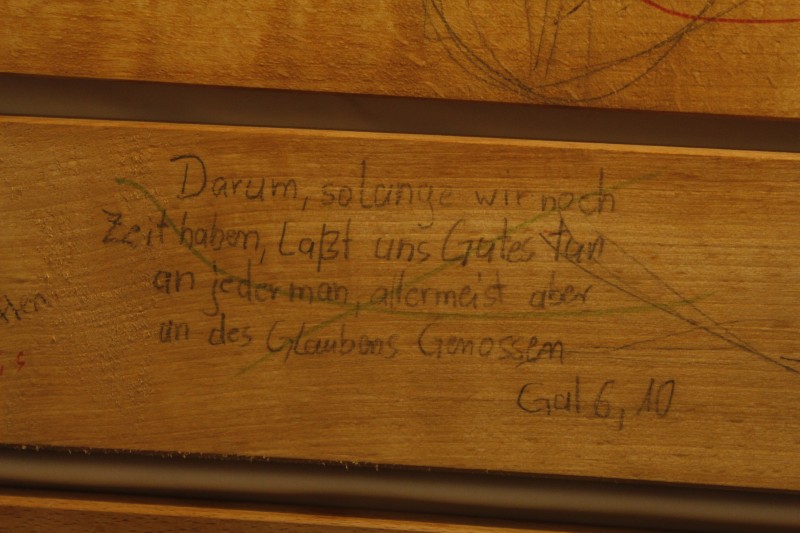 Darum, solange wir noch
Zeit haben, Laßt uns Gutes tun
an jederman, allermeist aber
an des Glaubens Genossen
Gal 6, 10